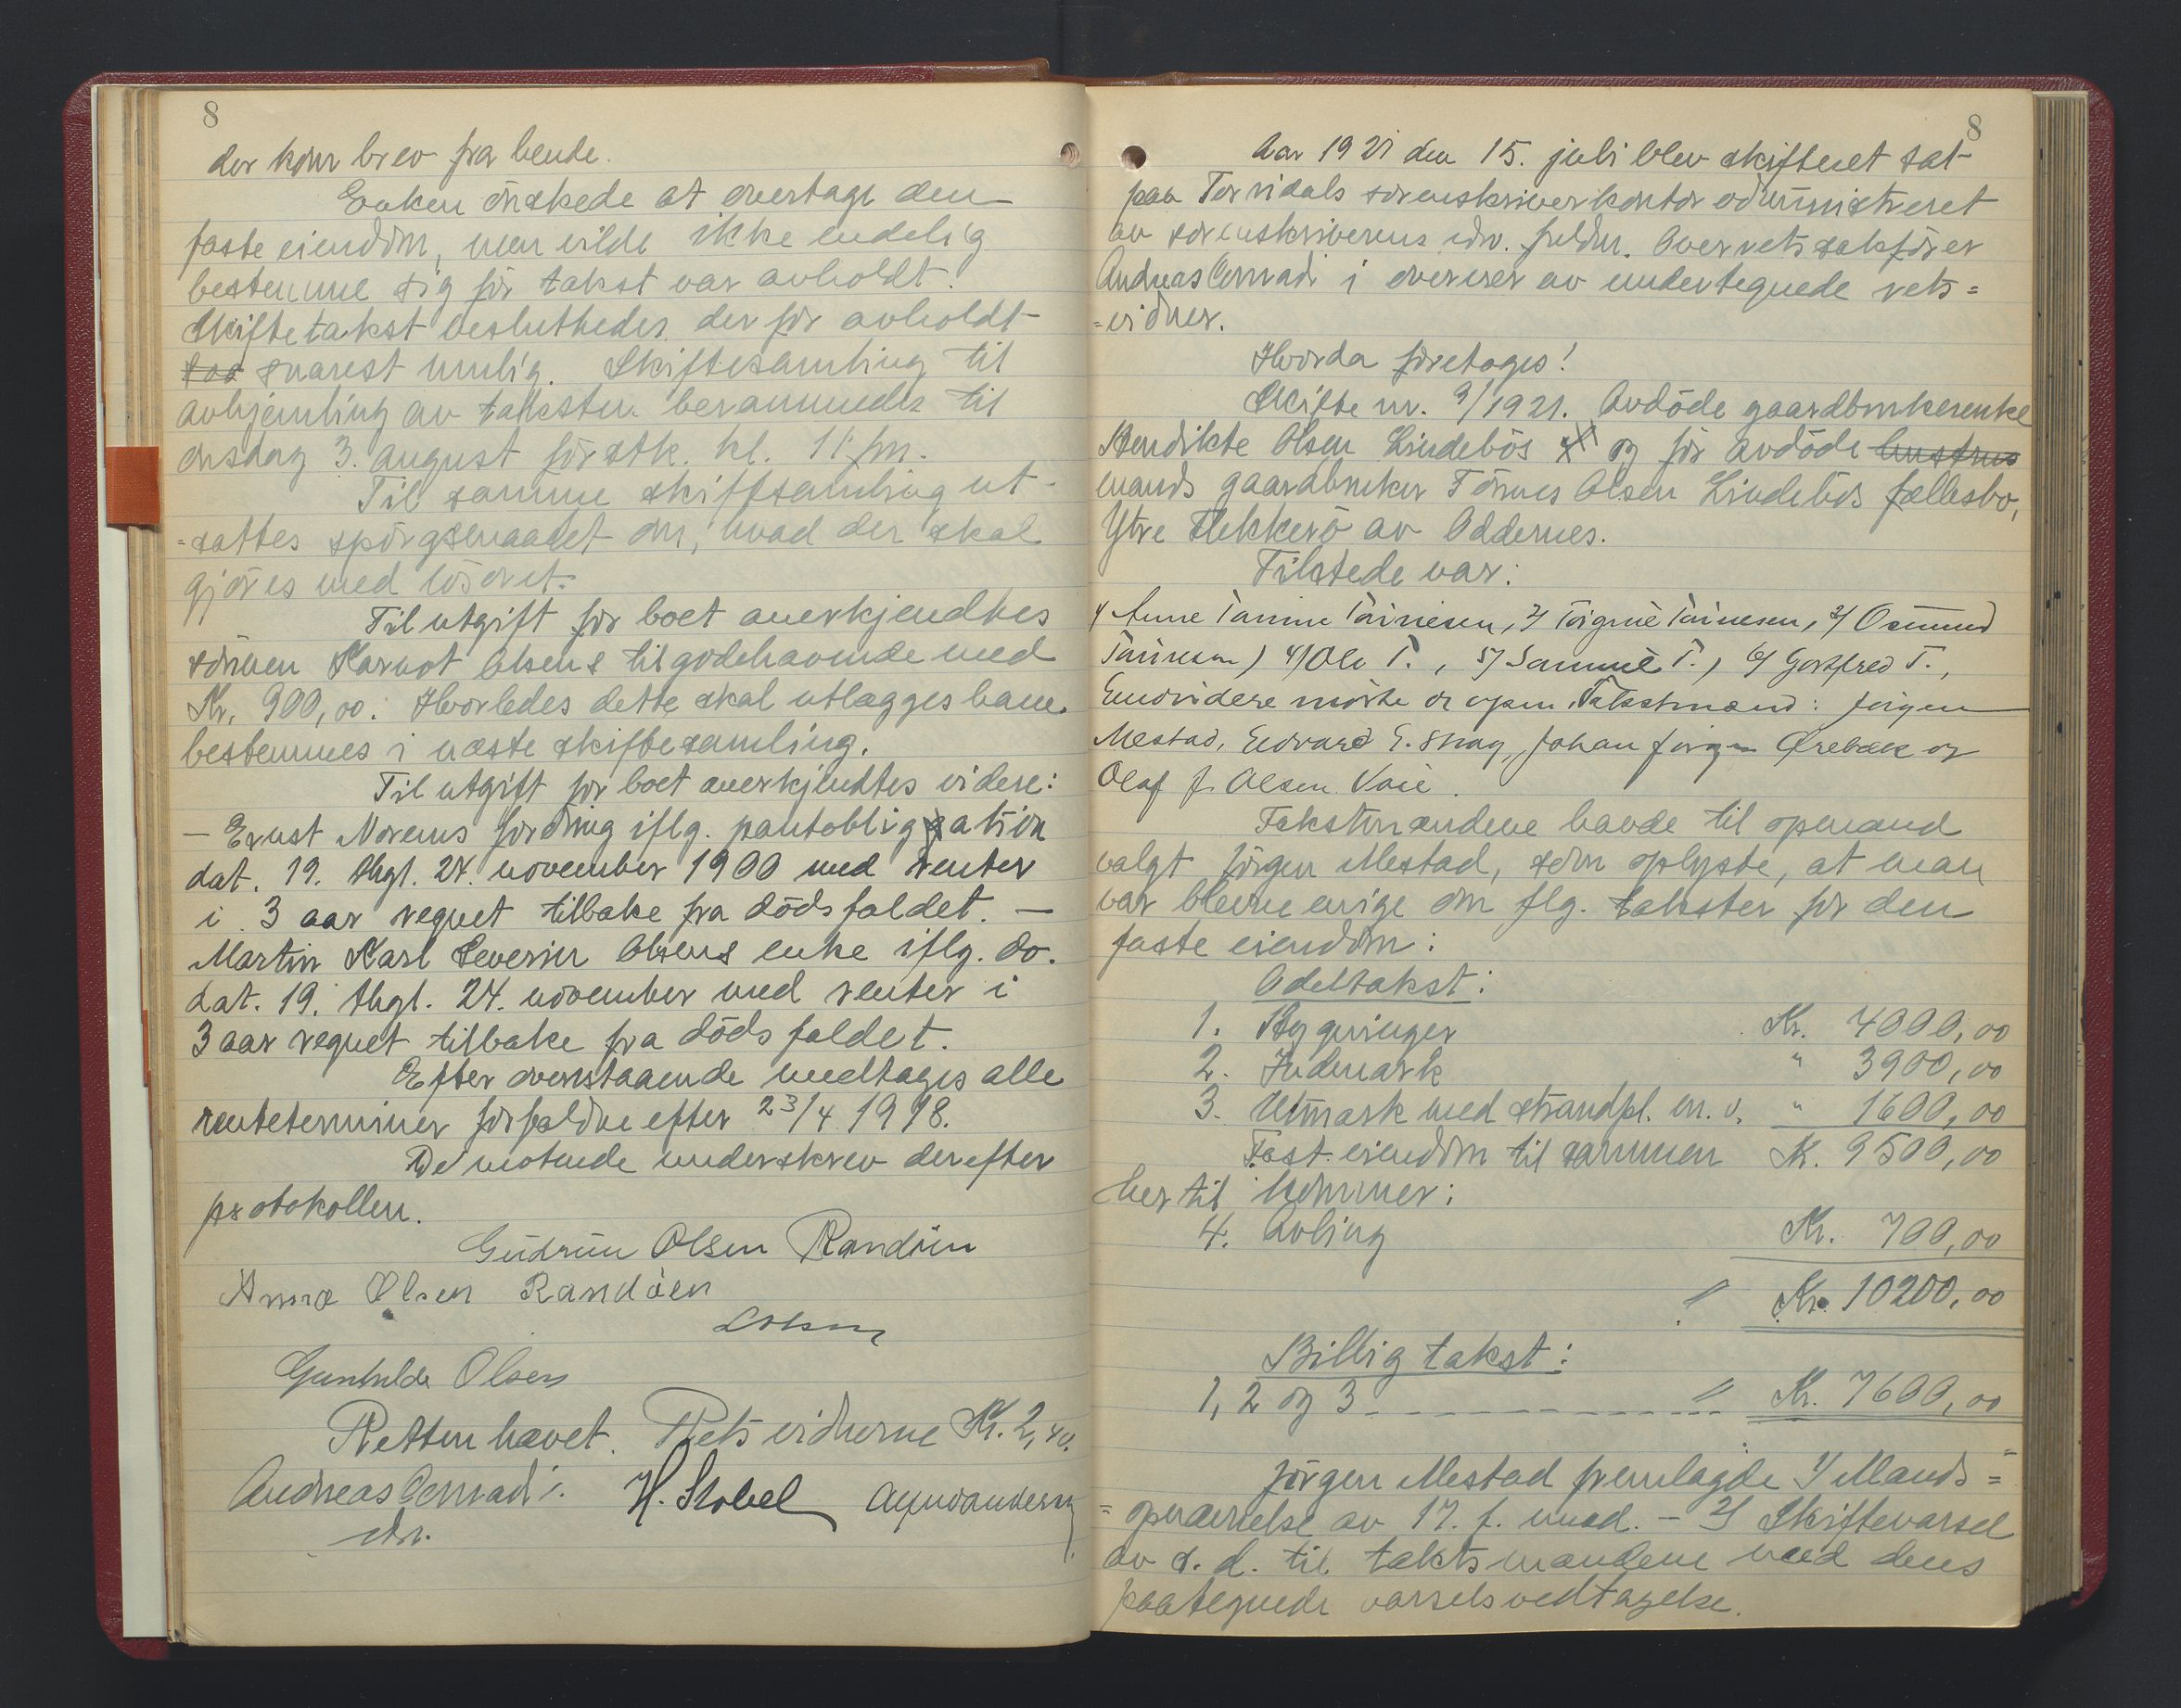 8
der kom brev fra hende.
Enken önskede at overtage den
faste eiendom, men vilde ikke endelig
bestemme sig för takst var avholdt.
Skiftetakst besluttedes derfor avholdt
snarest mulig. Skiftesamling til
avhjemling av taksten berammedes til
onsdag 3. august förstk. kl. 11 fm.
Til samme skiftesamling ut-
=sattes spörgsmaalet om, hvad der skal
gjöres med lösöret.
Til utgift for boet anerkjendtes
sönnen Karnot Olsens tilgodehavende med
Kr. 900,00. Hvorledes dette skal utlægges ham
bestemmes i næste skiftesamling.
Til utgift for boet anerkjendtes videre:
— Ernst Norems fordring iflg. pantobligation
dat. 19. thgl. 24. november 1900 med renter
i 3 aar regnet tilbake fra dödsfaldet. —
Martin Karl Severin Olsens enke iflg. do.
dat. 19. thgl. 24. november med renter i
3 aar regnet tilbake fra dödsfaldet.
Efter ovenstaaende medtages alle
renteterminer forfaldne efter 23/4 1918.
De mötende underskrev derefter
protokollen.
Gudrun Olsen Randöen
Anna Olsen Randöen
Gunhilda Olsen
Retten hævet. Retsvidnerne Kr. 2,40.
Andreas Conradi. H. Stobel
8
Aar 1921 den 15. juli blev skifteret sat
paa Torridals sorenskriverkontor administreret
av sorenskriverens edv. fuldm. Overretssakförer
Andreas Conradi i overvær av undertegnede rets=
=vidner.
Hvorda foretoges!
Skifte nr. 9/1921. Avdöde gaardbrukerenke
Bendikte Olsen Lindebös og för avdöde hustrus
mands gaardbruker Tönnes Olsen Lindebös fællesbo,
Ytre Flekkerö av Oddernes.
Tilstede var:
1/ Anne Tomine Tönnesen, 2/ Torgine Tönnesen, 3/ Osmund
Tönnesen, 4/ Ole T., 5/ Samuel T., 6/ Gottfred T.,
Endvidere mötte de opn. Takstmænd: Jörgen
Mestad, Edvard E. Skag, Johan Jörgen Örebæk og
Olaf J. Olsen Vaie.
Takstmændene havde til opmand
valgt Jörgen Mestad, som oplyste, at man
var blevne enige om flg. takster for den
faste eiendom:
Odelstakst:
1. Bygninger Kr. 4000,00
2. Indmark " 3900,00
3. Utmark med strandpl. m. v. " 1600,00
Fast eiendom til sammen Kr. 9500,00
hertil kommer:
4. Avling Kr. 700,00
" Kr. 10200,00
Billig takst:
1, 2 og 3 " Kr. 7600,00
Jörgen Mestad fremlagde 1/ Mands=
=opnævnelse av 17. f. mnd. - 2/ Skiftevarsel
av s. d. til takstsmændene med deres
paategnede varselsvedtagelse.